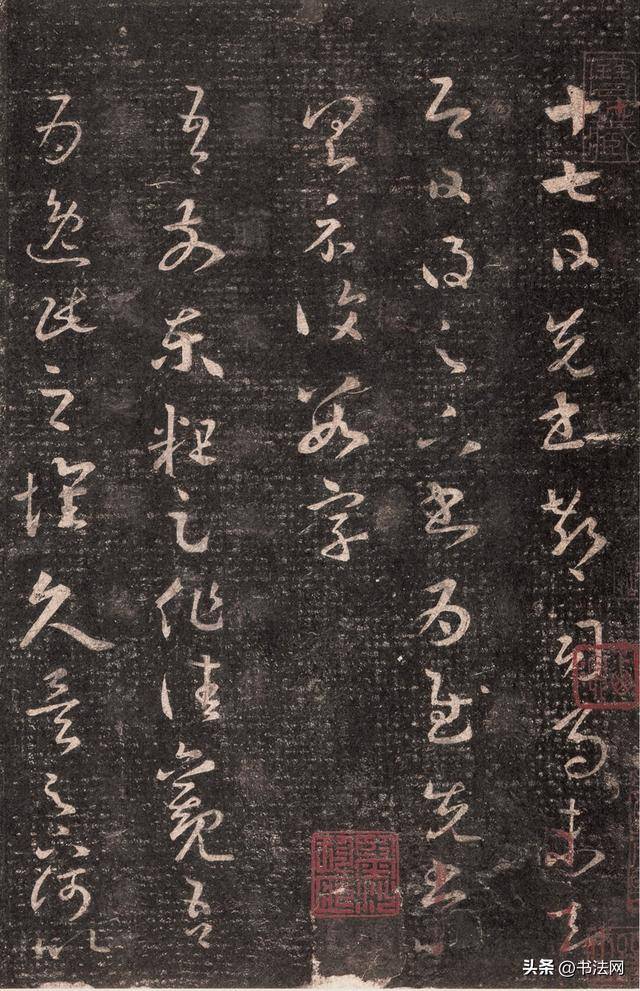 十七日先書郗司馬未去
即日得足下書為慰先書以
具示復數字
吾前東粗足作佳觀吾
為逸民之懷久矣足下何以
头条 @书法网